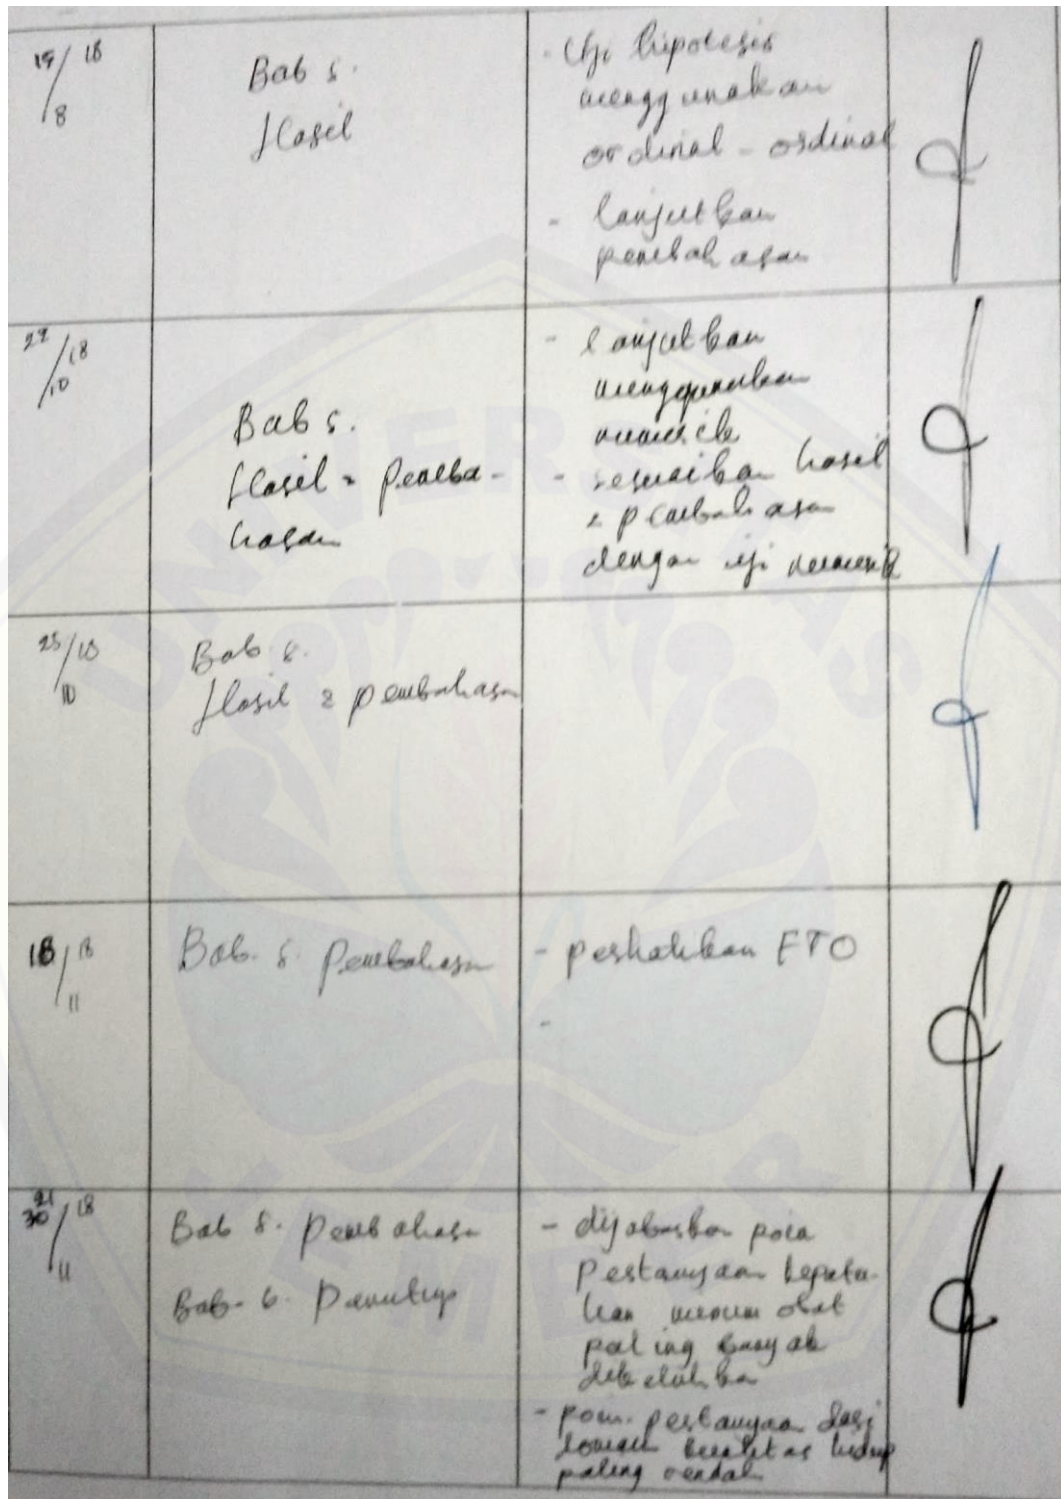 19/8 18
Bab 5.
Hasil
- Uji hipotesis
menggunakan
ordinal - ordinal
- lanjutkan
pembahasan
22/10 18
Bab 5.
Hasil & Pemba-
hasan
- lanjutkan
menggunakan
numerik
- sesuaikan hasil
& pembahasan
dengan uji numerik
25/10 18
Bab 5.
Hasil & pembahasan
18/11 18
Bab. 5. Pembahasan
- perhatikan ETO
-
30/11 18
Bab 5. Pembahasan
Bab. 6. Penutup
- dijabarkan poin
Pertanyaan kepatu-
han minum obat
paling banyak
- poin pertanyaan dari
domain kualitas hidup
paling rendah
UNIVERSITAS
JEMBER